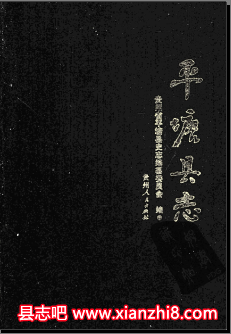 平塘县志
贵州省平塘县史志编纂委员会 编
贵州人民出版社
县志吧 www.xianzhi8.com